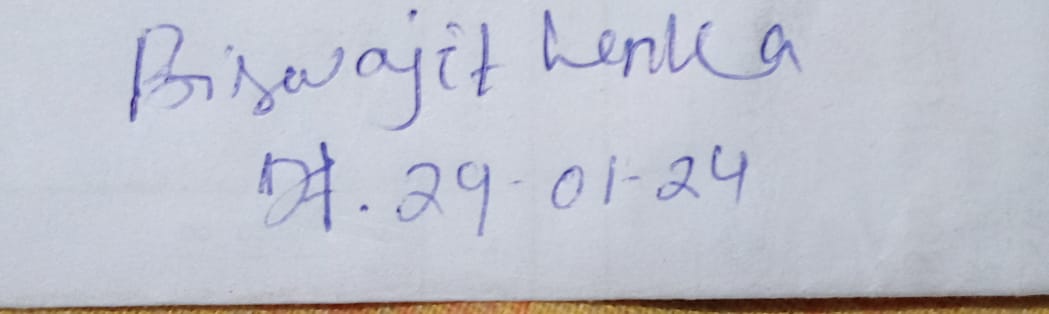 Biswajit Lenka
Dt. 29-01-24